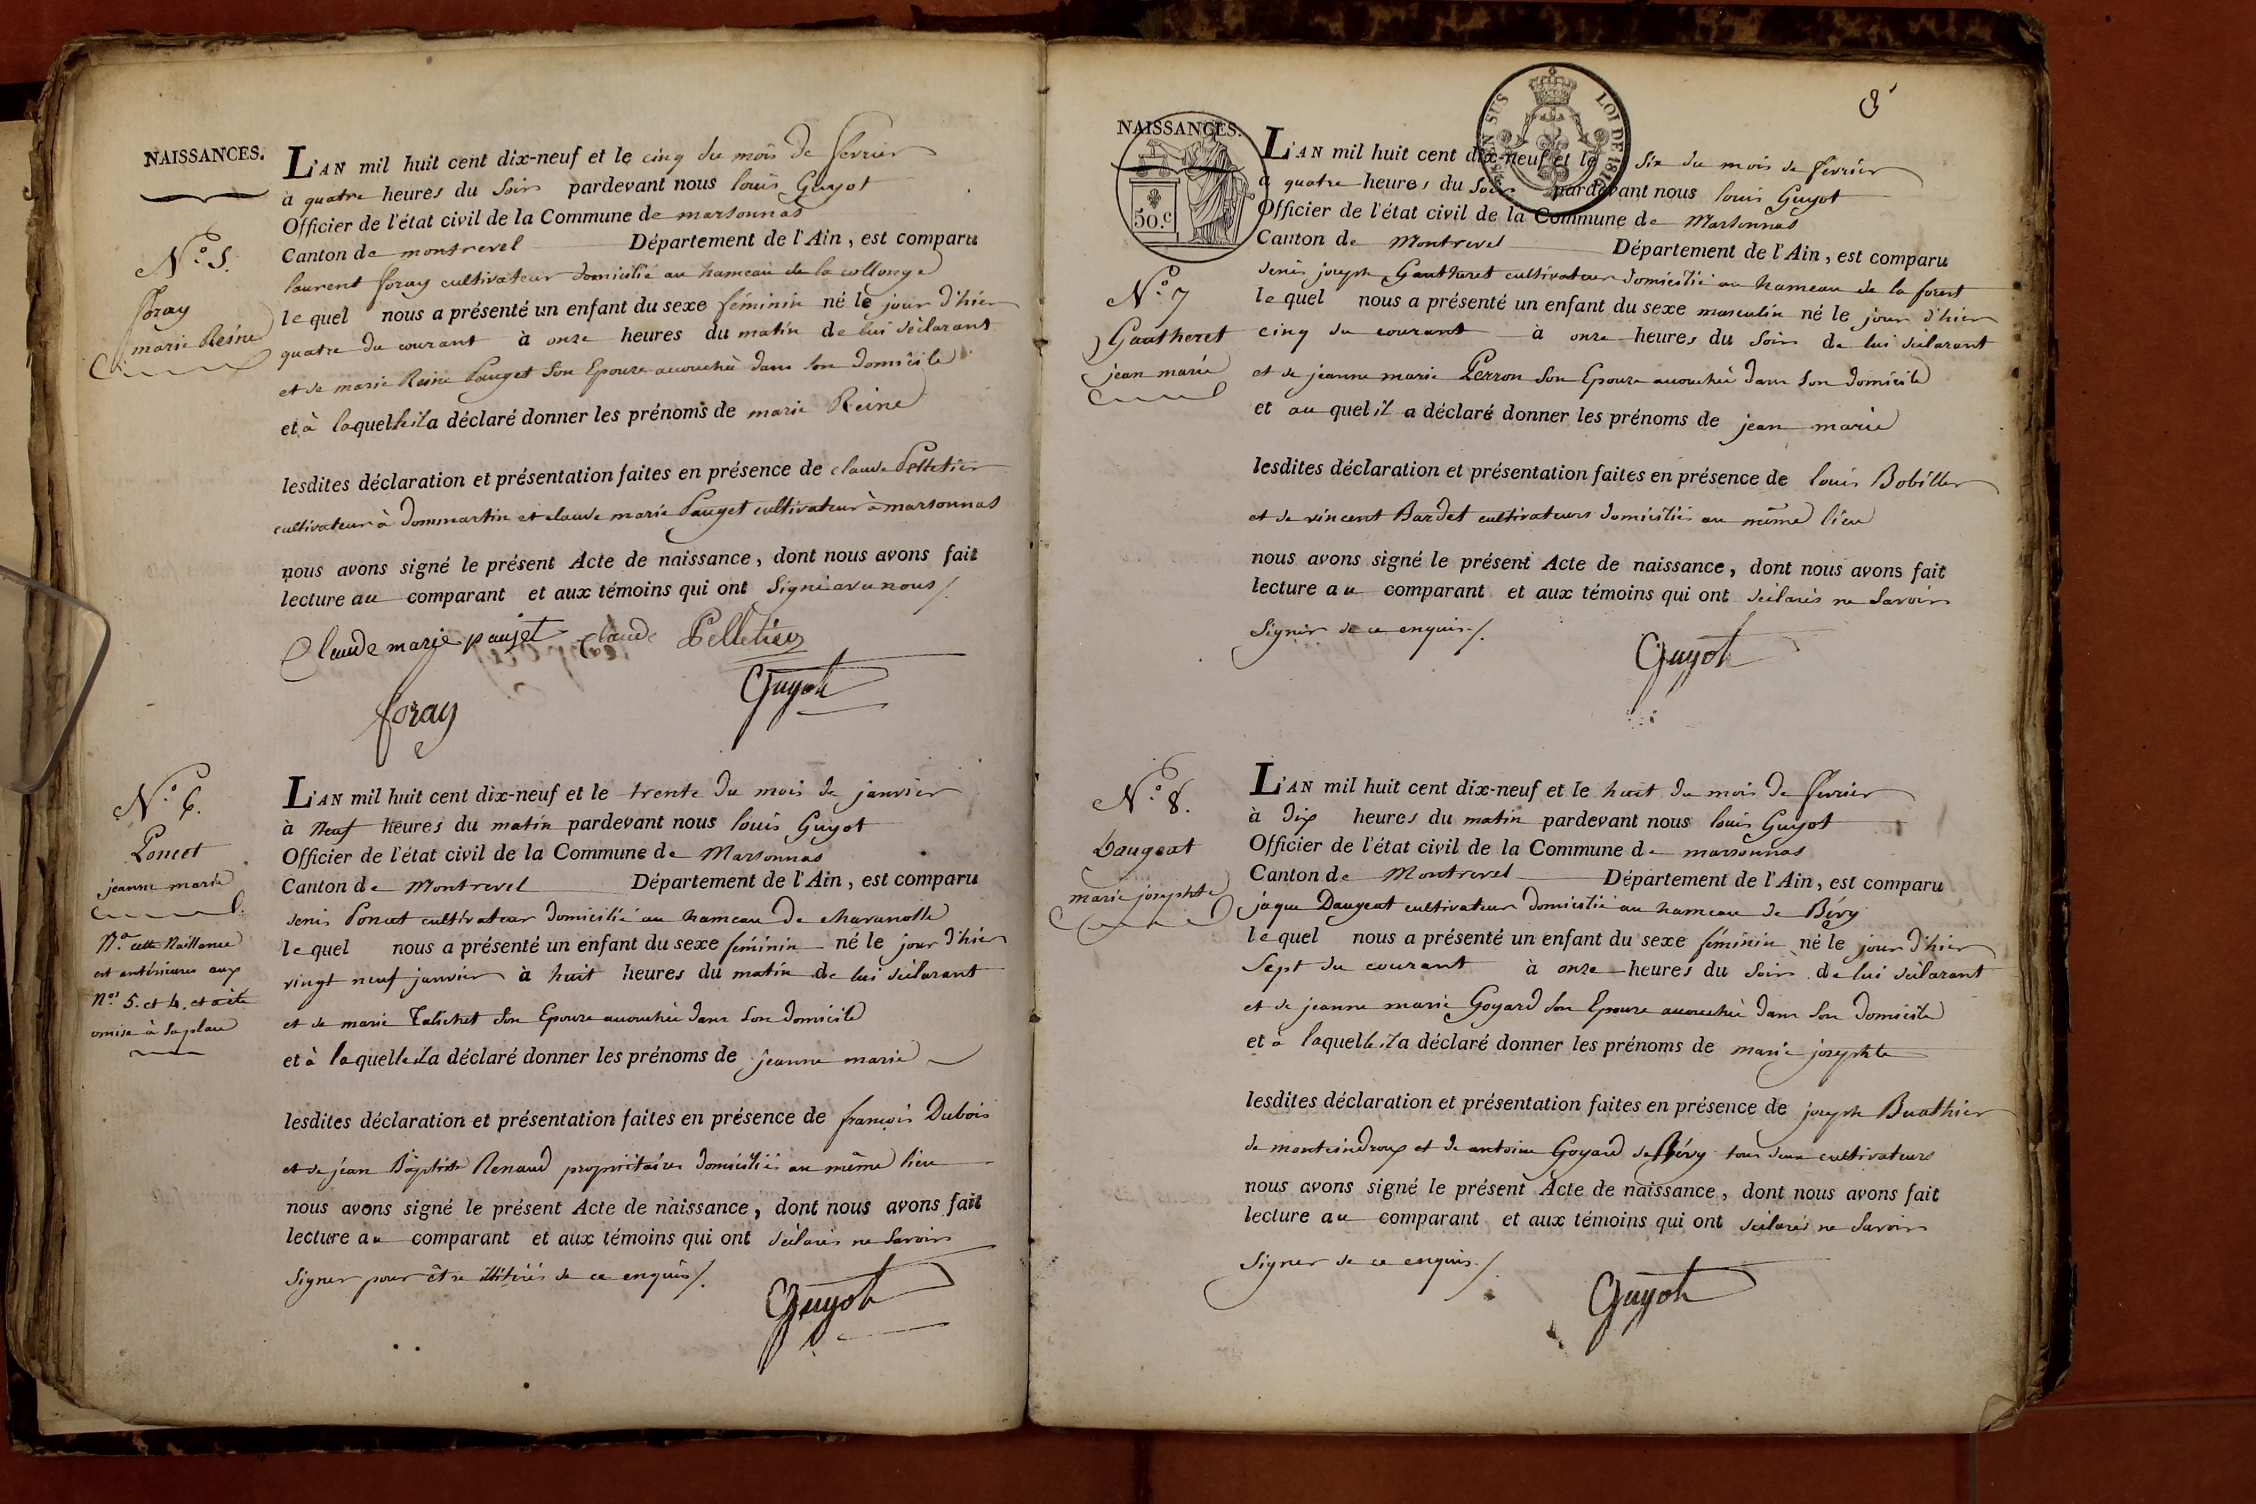 NAISSANCES.
N.º 5.
foray
marie Reine
L'AN mil huit cent dix-neuf et le cinq du mois de fevrier
à quatre heures du soir pardevant nous louis Guyot
Officier de l'état civil de la Commune de marsonnas
Canton de montrevel Département de l'Ain, est comparu
laurent foray cultivateur domicilié au hameau de la collonge
lequel nous a présenté un enfant du sexe féminin né le jour d'hier
quatre du courant à onze heures du matin de lui déclarant
et de marie Reine Pauget son Epouse accouchée dans son domicile
et à laquelle il a déclaré donner les prénoms de marie Reine
lesdites déclaration et présentation faites en présence de claude Pelletier
cultivateur à dommartin et claude marie Pauget cultivateur à marsonnas
nous avons signé le présent Acte de naissance, dont nous avons fait
lecture au comparant et aux témoins qui ont signé avec nous /.
Claude marie paujet claude Pelletier
foray Guyot
N.º 6.
Poncet
jeanne marie
N.ª cette Naissance
est antérieure aux
N.os 5. et 4. et a été
omise à sa place
L'AN mil huit cent dix-neuf et le trente du mois de janvier
à Neuf heures du matin pardevant nous louis Guyot
Officier de l'état civil de la Commune de Marsonnas
Canton de Montrevel Département de l'Ain, est comparu
denis Poncet cultivateur domicilié au hameau de charanolle
lequel nous a présenté un enfant du sexe féminin né le jour d'hier
vingt neuf janvier à huit heures du matin de lui déclarant
et de marie Talichet son Epouse accouchée dans son domicile
et à laquelle il a déclaré donner les prénoms de jeanne marie
lesdites déclaration et présentation faites en présence de françois Dubois
et de jean Baptiste Renaud propriétaires domiciliés au même lieu
nous avons signé le présent Acte de naissance, dont nous avons fait
lecture au comparant et aux témoins qui ont déclarés ne savoir
signer pour être illitérés de ce enquis /.
Guyot
NAISSANCES.
50.c
LOI DE 1816
N.º 7
Gautheret
jean marie
L'AN mil huit cent dix-neuf et le six du mois de fevrier
à quatre heures du soir pardevant nous louis Guyot
Officier de l'état civil de la Commune de Marsonnas
Canton de Montrevel Département de l'Ain, est comparu
denis joseph Gautheret cultivateur domicilié au hameau de la forest
lequel nous a présenté un enfant du sexe masculin né le jour d'hier
cinq du courant à onze heures du soir de lui déclarant
et de jeanne marie Perron son Epouse accouchée dans son domicile
et auquel il a déclaré donner les prénoms de jean marie
lesdites déclaration et présentation faites en présence de louis Bobiller
et de vincent Bardet cultivateurs domiciliés au même lieu
nous avons signé le présent Acte de naissance, dont nous avons fait
lecture au comparant et aux témoins qui ont déclarés ne savoir
signer de ce enquis /.
Guyot
N.º 8.
Daugeat
marie josephte
L'AN mil huit cent dix-neuf et le huit du mois de fevrier
à dix heures du matin pardevant nous louis Guyot
Officier de l'état civil de la Commune de marsonnas
Canton de Montrevel Département de l'Ain, est comparu
jaque Daugeat cultivateur domicilié au hameau de Bévy
lequel nous a présenté un enfant du sexe féminin né le jour d'hier
sept du courant à onze heures du soir de lui déclarant
et de jeanne marie Goyard son Epouse accouchée dans son domicile
et à laquelle il a déclaré donner les prénoms de marie josephte
lesdites déclaration et présentation faites en présence de joseph Buathier
de montcindroux et de antoine Goyard de Bévy tous deux cultivateurs
nous avons signé le présent Acte de naissance, dont nous avons fait
lecture au comparant et aux témoins qui ont déclarés ne savoir
signer de ce enquis /.
Guyot